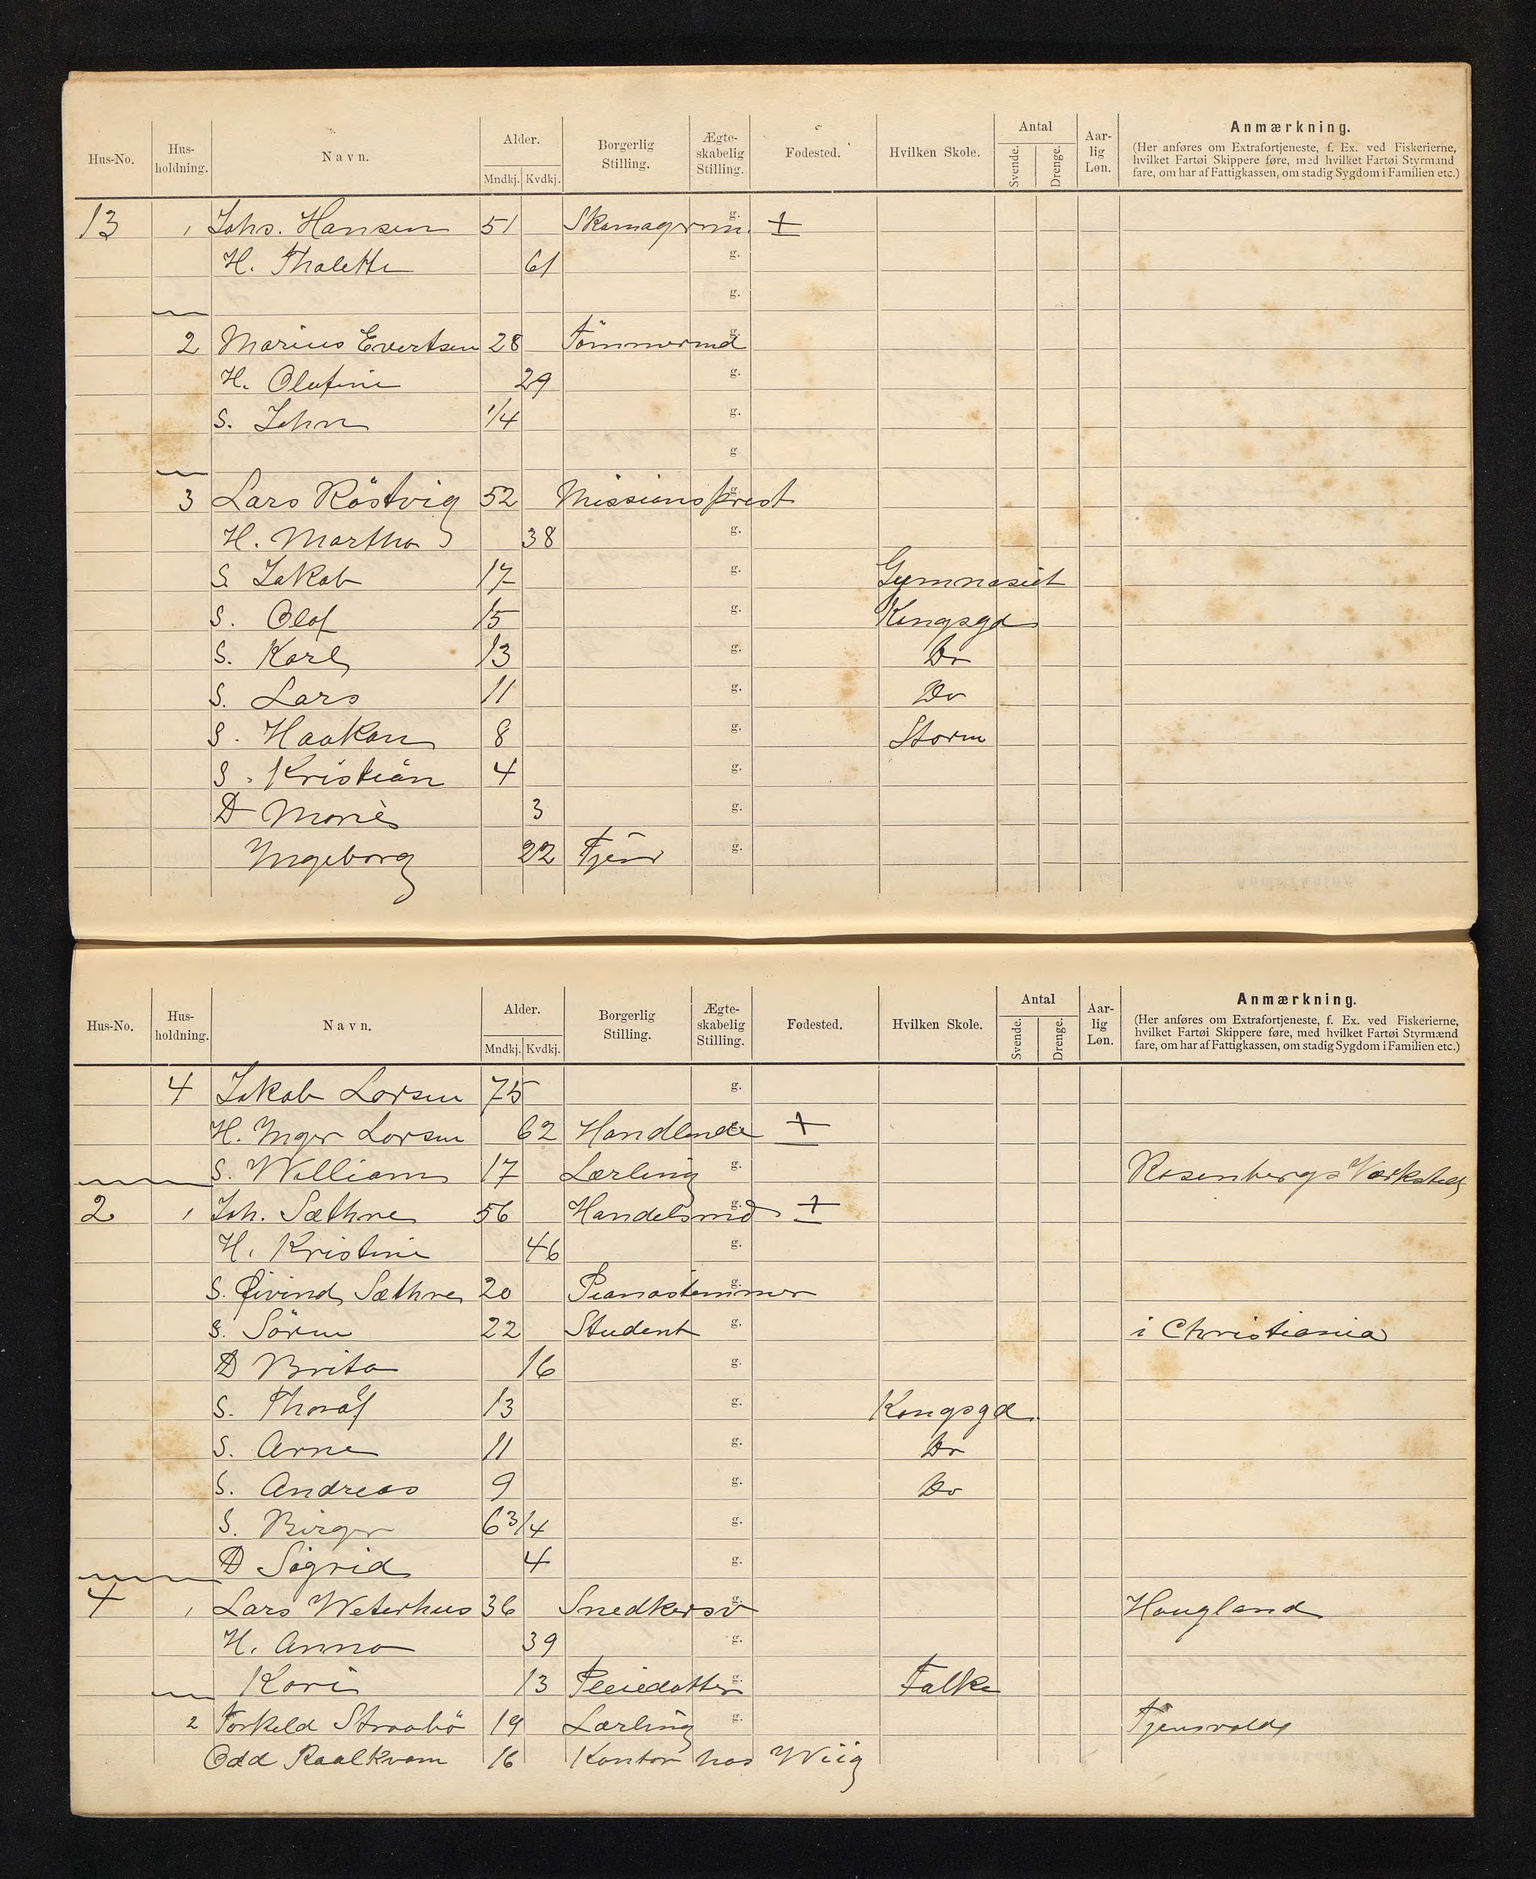 Hus-No. Hus-holdning. Navn. Alder. Mndkj. Kvdkj. Borgerlig Stilling. Ægte-skabelig Stilling. Fødested. Hvilken Skole. Antal Svende. Drenge. Aar-lig Løn. Anmærkning.
(Her anføres om Extrafortjeneste, f. Ex. ved Fiskerierne,
hvilket Fartøi Skippere føre, med hvilket Fartøi Styrmænd
fare, om har af Fattigkassen, om stadig Sygdom i Familien etc.)
13 1 Johs. Hansen 51 Skomagerm. g. +
H. Thalette 61 g.
g.
2 Marius Evertsen 28 Tömmermd g.
H. Olufine 29 g.
S. John 1/4 g.
g
3 Lars Röstvig 52 Missionsprest g.
H. Martha 38 g.
S. Jakob 17 g. Gymnasiet
S. Olaf 15 g. Kongsgd
S. Karl 13 g. Do
S. Lars 11 g. Do
S. Haakon 8 g. Storm
S. Kristian 4 g.
D Marie 3 g.
Ingeborg 22 Tjen g.
Hus-No. Hus-holdning. Navn. Alder. Mndkj. Kvdkj. Borgerlig Stilling. Ægte-skabelig Stilling. Fødested. Hvilken Skole. Antal Svende. Drenge. Aar-lig Løn. Anmærkning.
(Her anføres om Extrafortjeneste, f. Ex. ved Fiskerierne,
hvilket Fartøi Skippere føre, med hvilket Fartøi Styrmænd
fare, om har af Fattigkassen, om stadig Sygdom i Familien etc.)
4 Jakob Larsen 75 g.
H. Inger Larsen 62 Handlende g. +
S. William 17 Lærling g. Rosenbergs Værksted
2 1 Joh. Sæthre 56 Handelsmd g. +
H. Kristine 46 g.
S. Øivind Sæthre 20 Pianostemmer g.
S. Sören 22 Student g. i Christiania
D Brita 16 g.
S. Thoralf 13 g. Kongsgd.
S. Arne 11 g. Do
S. Andreas 9 g. Do
S. Birger 6 3/4 g.
D Sigrid 4 g.
4 1 Lars Weterhus 36 Snedkersv g. Haugland
H. Anna 39 g.
Kari 13 Pleiedatter g. Falke
2 Torkeld Straabö 19 Lærling g. Tjensvold
Odd Raalkvam 16 Kontor hos Wiig